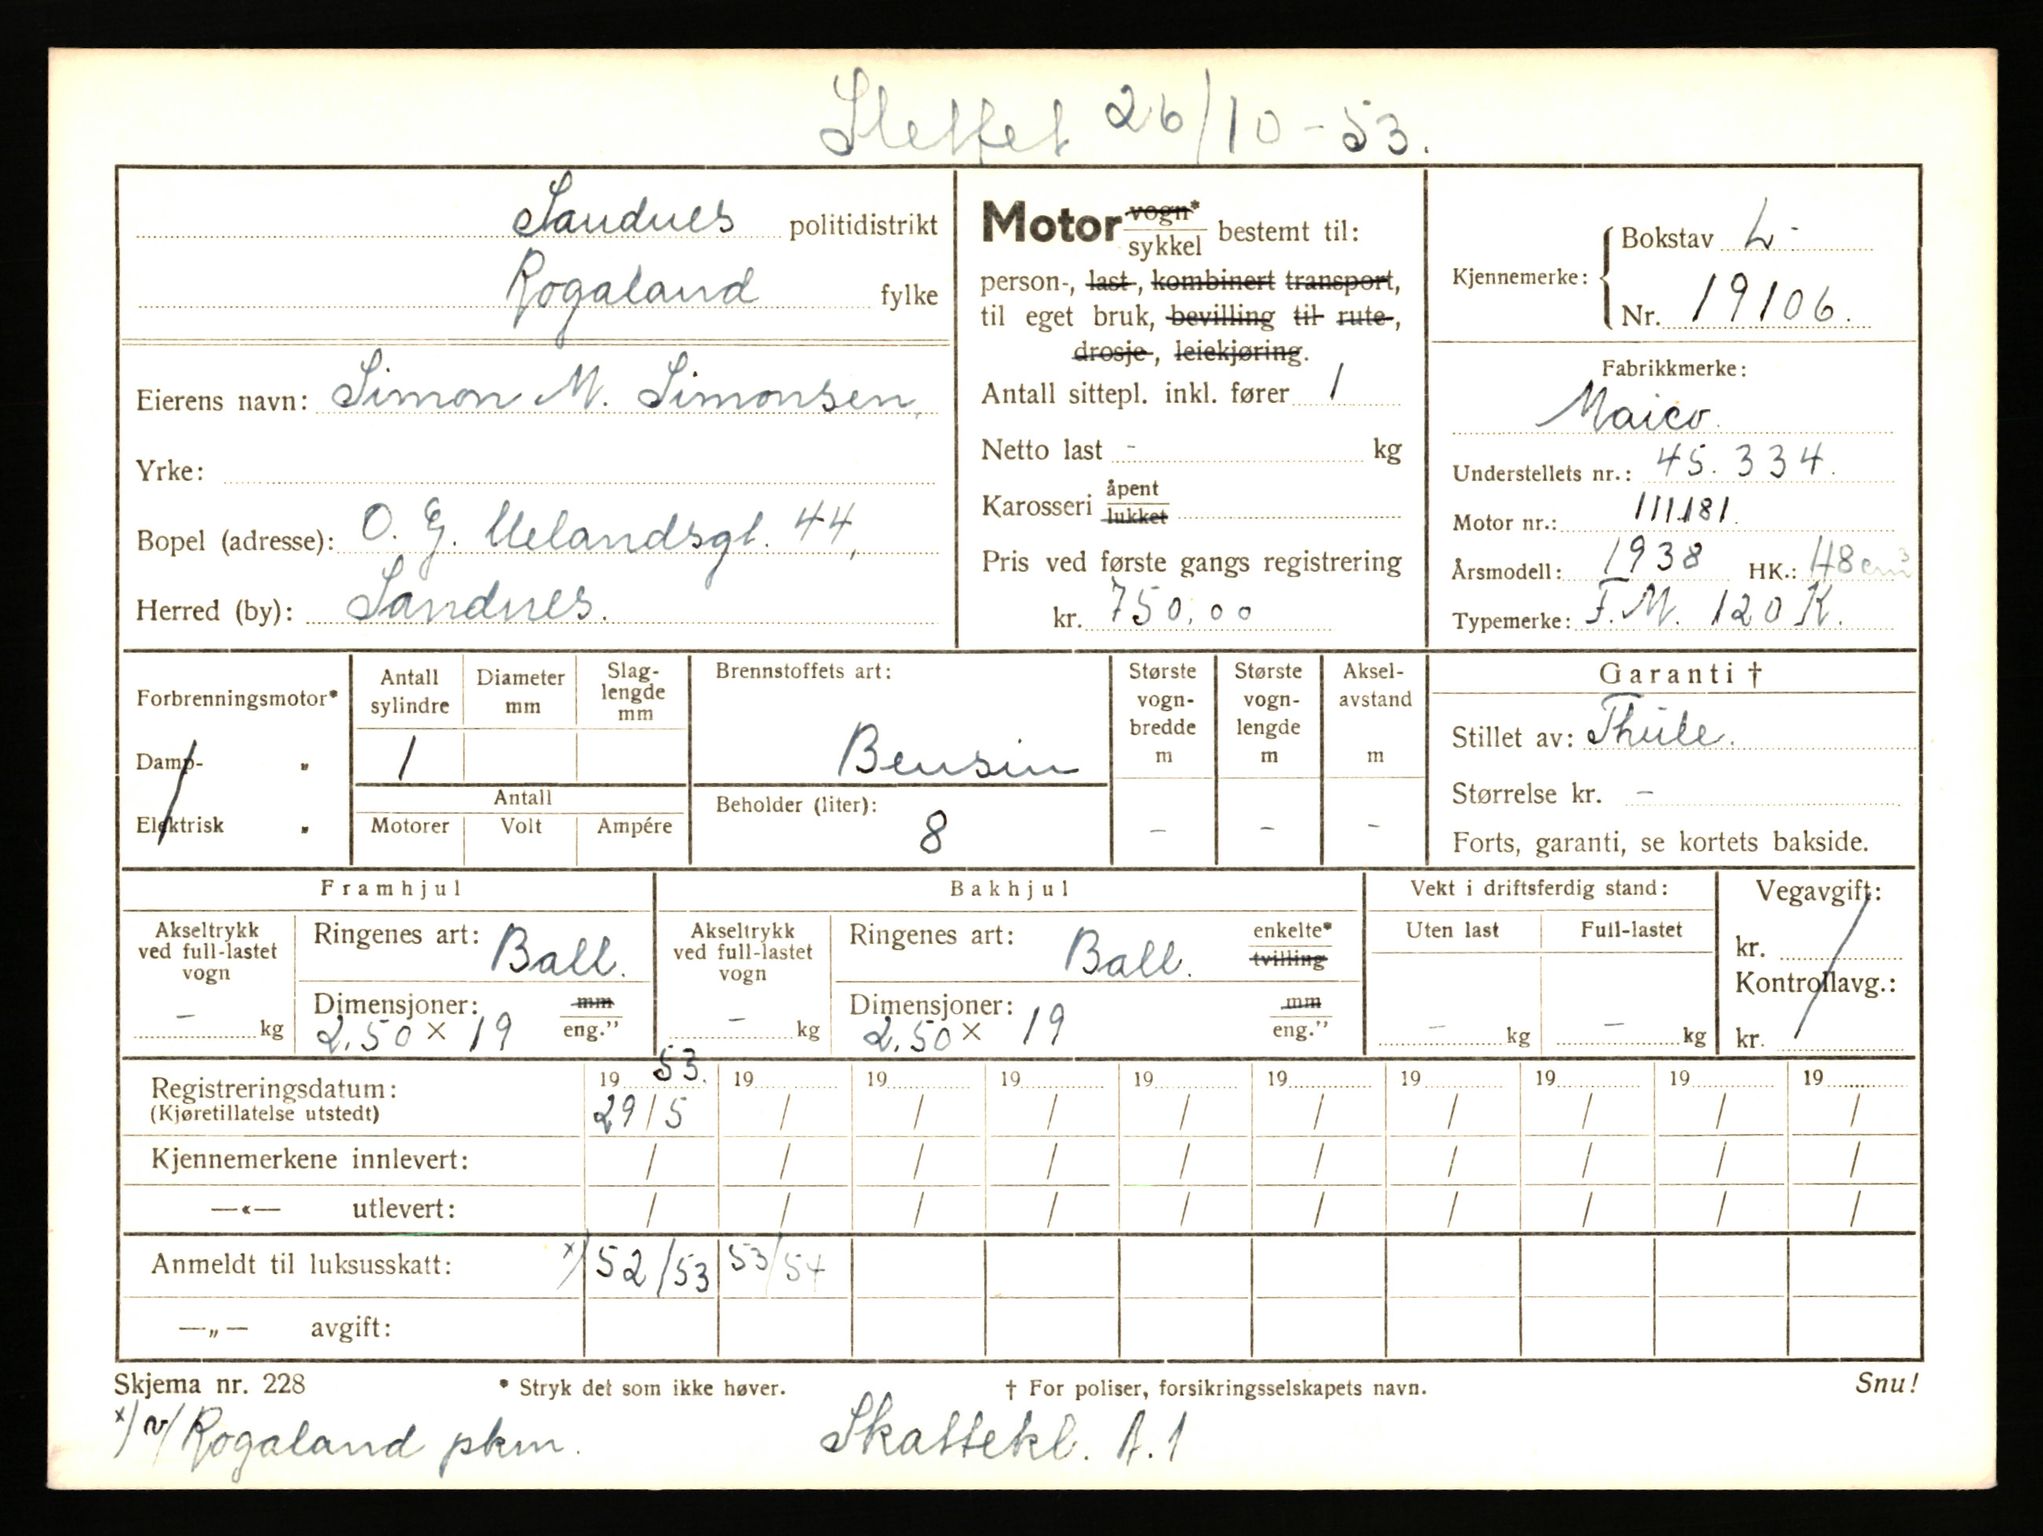 Slettet 26/10-53.
Sandnes politidistrikt
Rogaland fylke
Eierens navn: Simon M. Simonsen,
Yrke:
Bopel (adresse): O. G. Uelandsgt. 44,
Herred (by): Sandnes.
Motor vogn* / sykkel bestemt til:
person-, last-, kombinert transport,
til eget bruk, bevilling til rute-,
drosje-, leiekjøring.
Antall sittepl. inkl. fører 1
Netto last - kg
Karosseri åpent / lukket
Pris ved første gangs registrering
kr. 750,00
Kjennemerke: Bokstav L-
Nr. 19106.
Fabrikkmerke:
Maico.
Understellets nr.: 45.334.
Motor nr.: 111181.
Årsmodell: 1938 HK.: 48 cm³
Typemerke: F.M. 120 K.
Forbrenningsmotor*
Damp- „
Elektrisk „
Antall sylindre Diameter mm Slaglengde mm
1
Antall
Motorer Volt Ampére
Brennstoffets art:
Bensin
Beholder (liter):
8
Største vognbredde m Største vognlengde m Akselavstand m
- - -
Garanti †
Stillet av: Thule.
Størrelse kr. -
Forts, garanti, se kortets bakside.
Framhjul
Akseltrykk ved full-lastet vogn
- kg
Ringenes art: Ball.
Dimensjoner: mm
2.50 × 19 eng.”
Bakhjul
Akseltrykk ved full-lastet vogn
- kg
Ringenes art: Ball. enkelte* tvilling
Dimensjoner: mm
2.50 × 19 eng.”
Vekt i driftsferdig stand:
Uten last Full-lastet
- kg - kg
Vegavgift:
kr.
Kontrollavg.:
kr.
Registreringsdatum: 19 53. 19 19 19 19 19 19 19 19 19
(Kjøretillatelse utstedt) 29/5 / / / / / / / / /
Kjennemerkene innlevert: / / / / / / / / / /
—«— utlevert: / / / / / / / / / /
Anmeldt til luksusskatt: x/ 52/53 53/54
—„— avgift:
Skjema nr. 228 * Stryk det som ikke høver. † For poliser, forsikringsselskapets navn. Snu!
x/ v/ Rogaland pkm. Skattekl. A.1